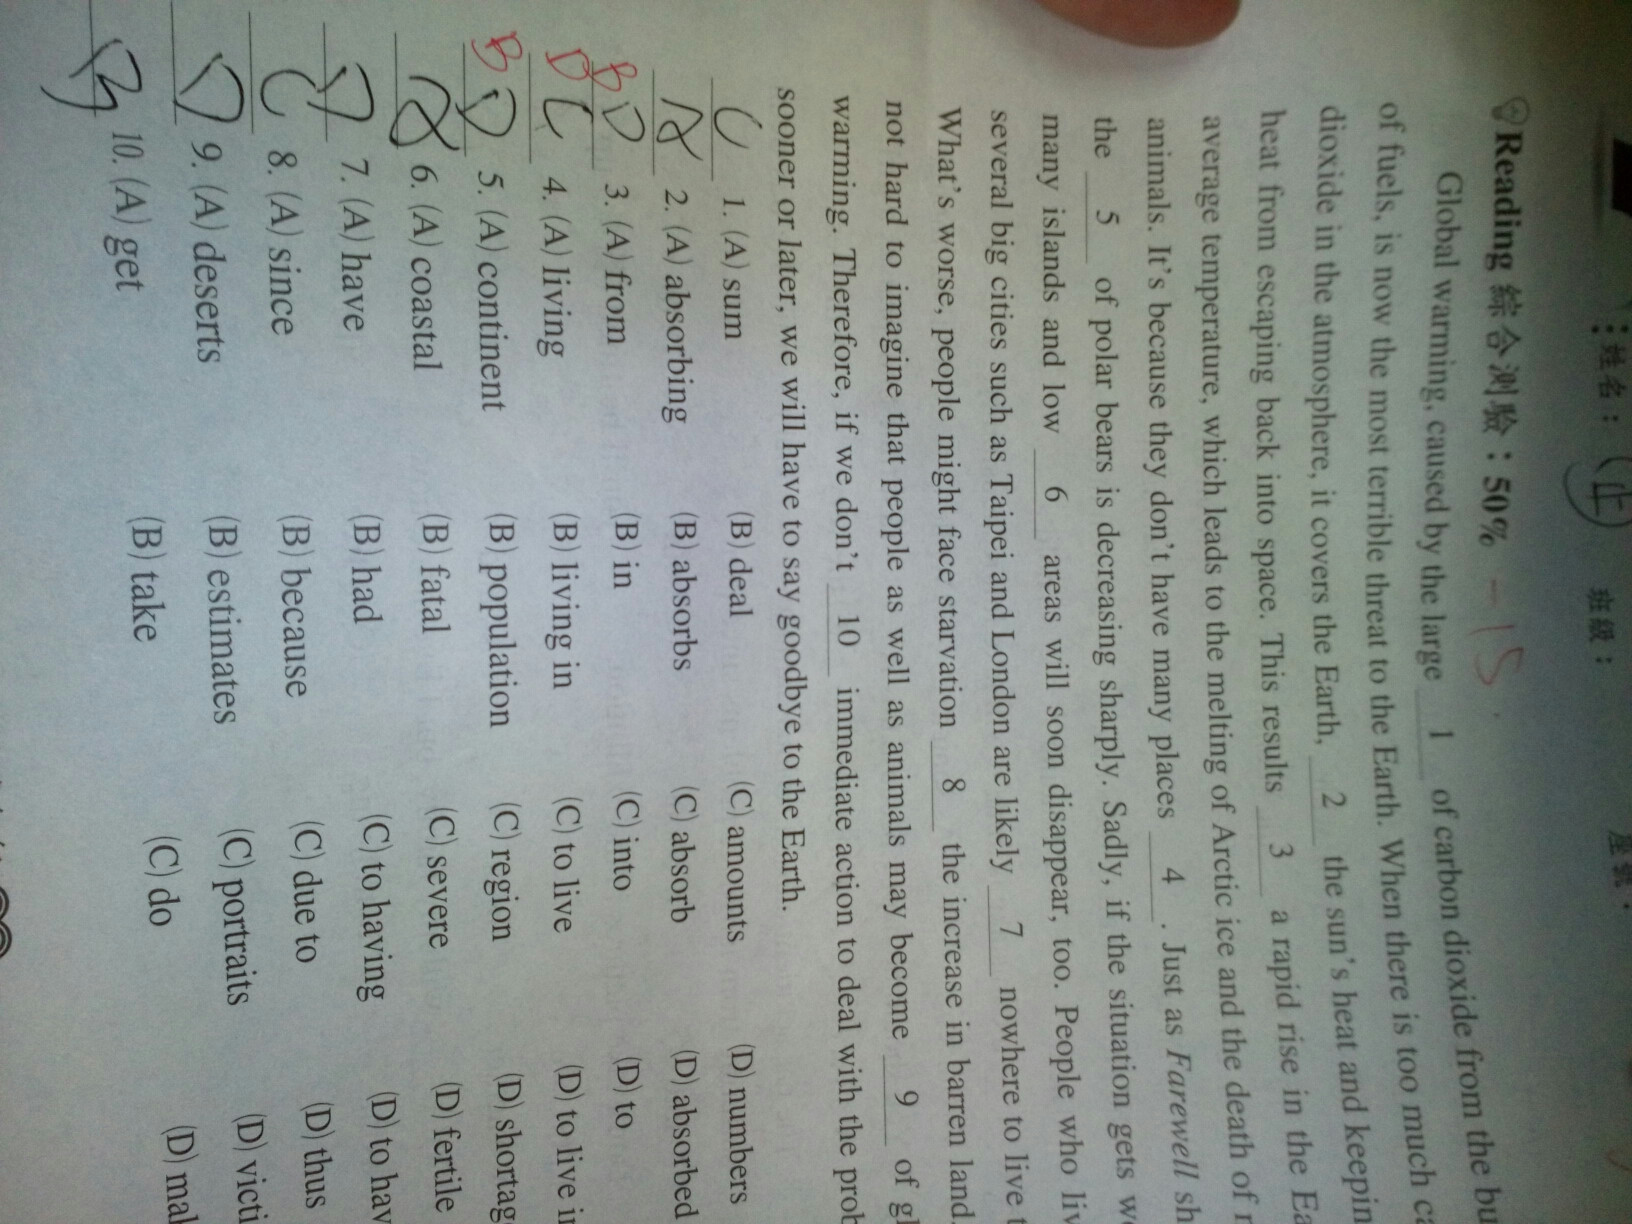 姓名：(上) 班級： 座號：
Reading 綜合測驗：50% -15.
Global warming, caused by the large 1 of carbon dioxide from the
of fuels, is now the most terrible threat to the Earth. When there is too much
dioxide in the atmosphere, it covers the Earth, 2 the sun's heat and
heat from escaping back into space. This results 3 a rapid rise in the
average temperature, which leads to the melting of Arctic ice and the death of
animals. It's because they don't have many places 4 . Just as Farewell
the 5 of polar bears is decreasing sharply. Sadly, if the situation gets
many islands and low 6 areas will soon disappear, too. People who
several big cities such as Taipei and London are likely 7 nowhere to live
What's worse, people might face starvation 8 the increase in barren land.
not hard to imagine that people as well as animals may become 9 of
warming. Therefore, if we don't 10 immediate action to deal with the
sooner or later, we will have to say goodbye to the Earth.
C 1. (A) sum (B) deal (C) amounts (D) numbers
A 2. (A) absorbing (B) absorbs (C) absorb (D) absorbed
B D 3. (A) from (B) in (C) into (D) to
D C 4. (A) living (B) living in (C) to live (D) to live
B D 5. (A) continent (B) population (C) region (D)
A 6. (A) coastal (B) fatal (C) severe (D) fertile
D 7. (A) have (B) had (C) to having (D) to
C 8. (A) since (B) because (C) due to (D) thus
D 9. (A) deserts (B) estimates (C) portraits (D)
B 10. (A) get (B) take (C) do (D)